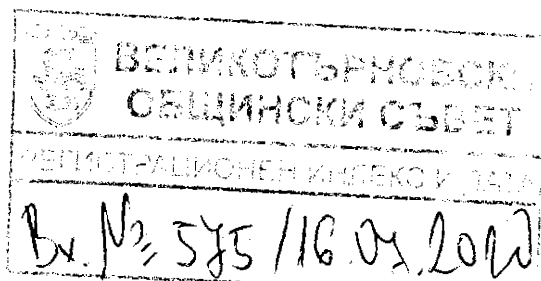 ВЕЛИКОТЪРНОВСКИ
ОБЩИНСКИ СЪВЕТ
РЕГИСТРАЦИОНЕН ИНДЕКС И ДАТА
Вх. № 575 /16.07.2020